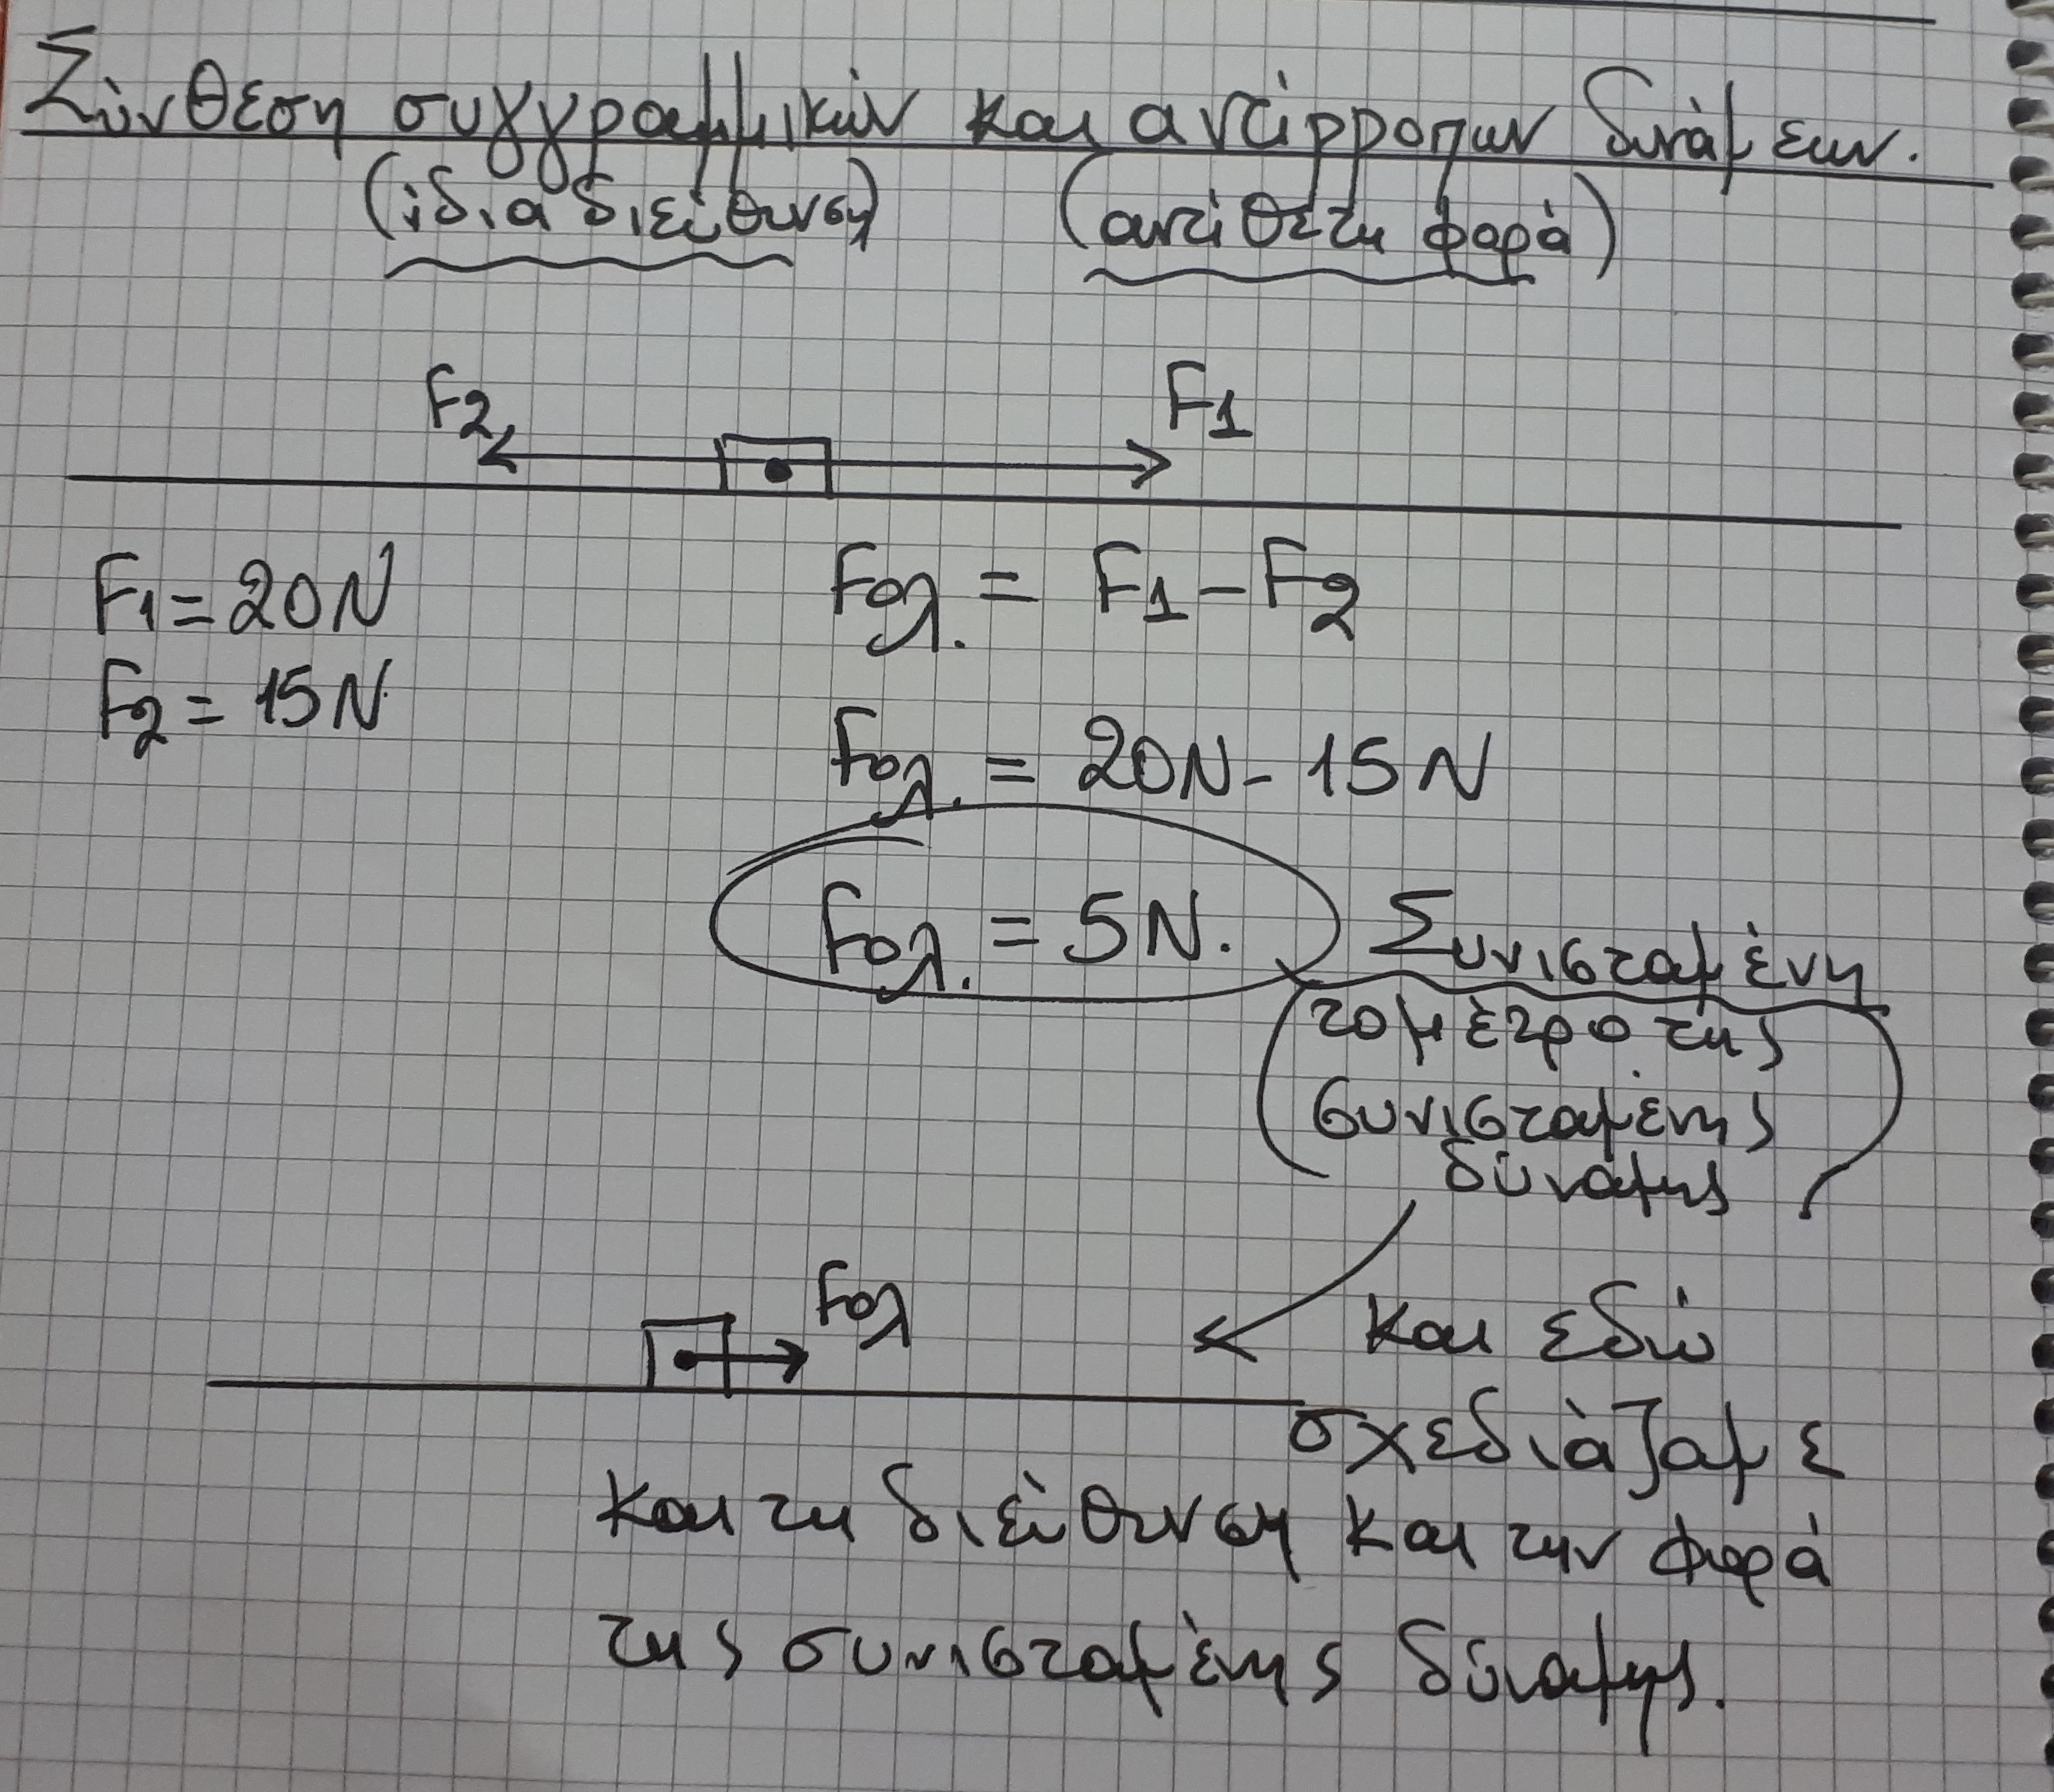 Σύνθεση συγγραμμικών και αντίρροπων δυνάμεων.
(ίδια διεύθυνση) (αντίθετη φορά)
F2 F1
F1 = 20N Fολ. = F1 - F2
F2 = 15N
Fολ. = 20N - 15N
Fολ. = 5N. Συνισταμένη
(το μέτρο της
συνισταμένης
δύναμης)
Fολ
και εδώ
σχεδιάζαμε
και τη διεύθυνση και την φορά
της συνισταμένης δύναμης.